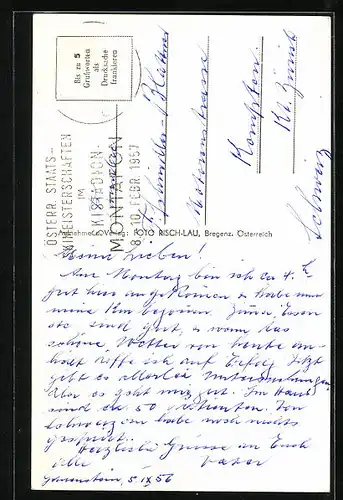 Bis zu 5
Grußworten
als
Drucksache
frankieren
ÖSTERR. STAATS-
SKIMEISTERSCHAFTEN
IM
SKISTADION
MONTAFON
8.-10. FEBR. 1957
Kempten
Kt. Zürich
Schweiz
FOTO RISCH-LAU, Bregenz, Österreich
Meine Lieben!
Am Montag bin ich ca 4
gut hier angekommen & habe
meine Kur begonnen. Zimmer, Essen
etc. sind gut, & wenn das
schöne Wetter von heute an-
hält hoffe ich auf Erfolg. Jetzt
gibt es allerlei Untersuchungen
aber es geht mir gut. Im Haus
sind ca 50 Patienten. Von
habe noch nichts
gespürt.
Herzliche Grüsse an Euch
alle Vater
5. IX 56